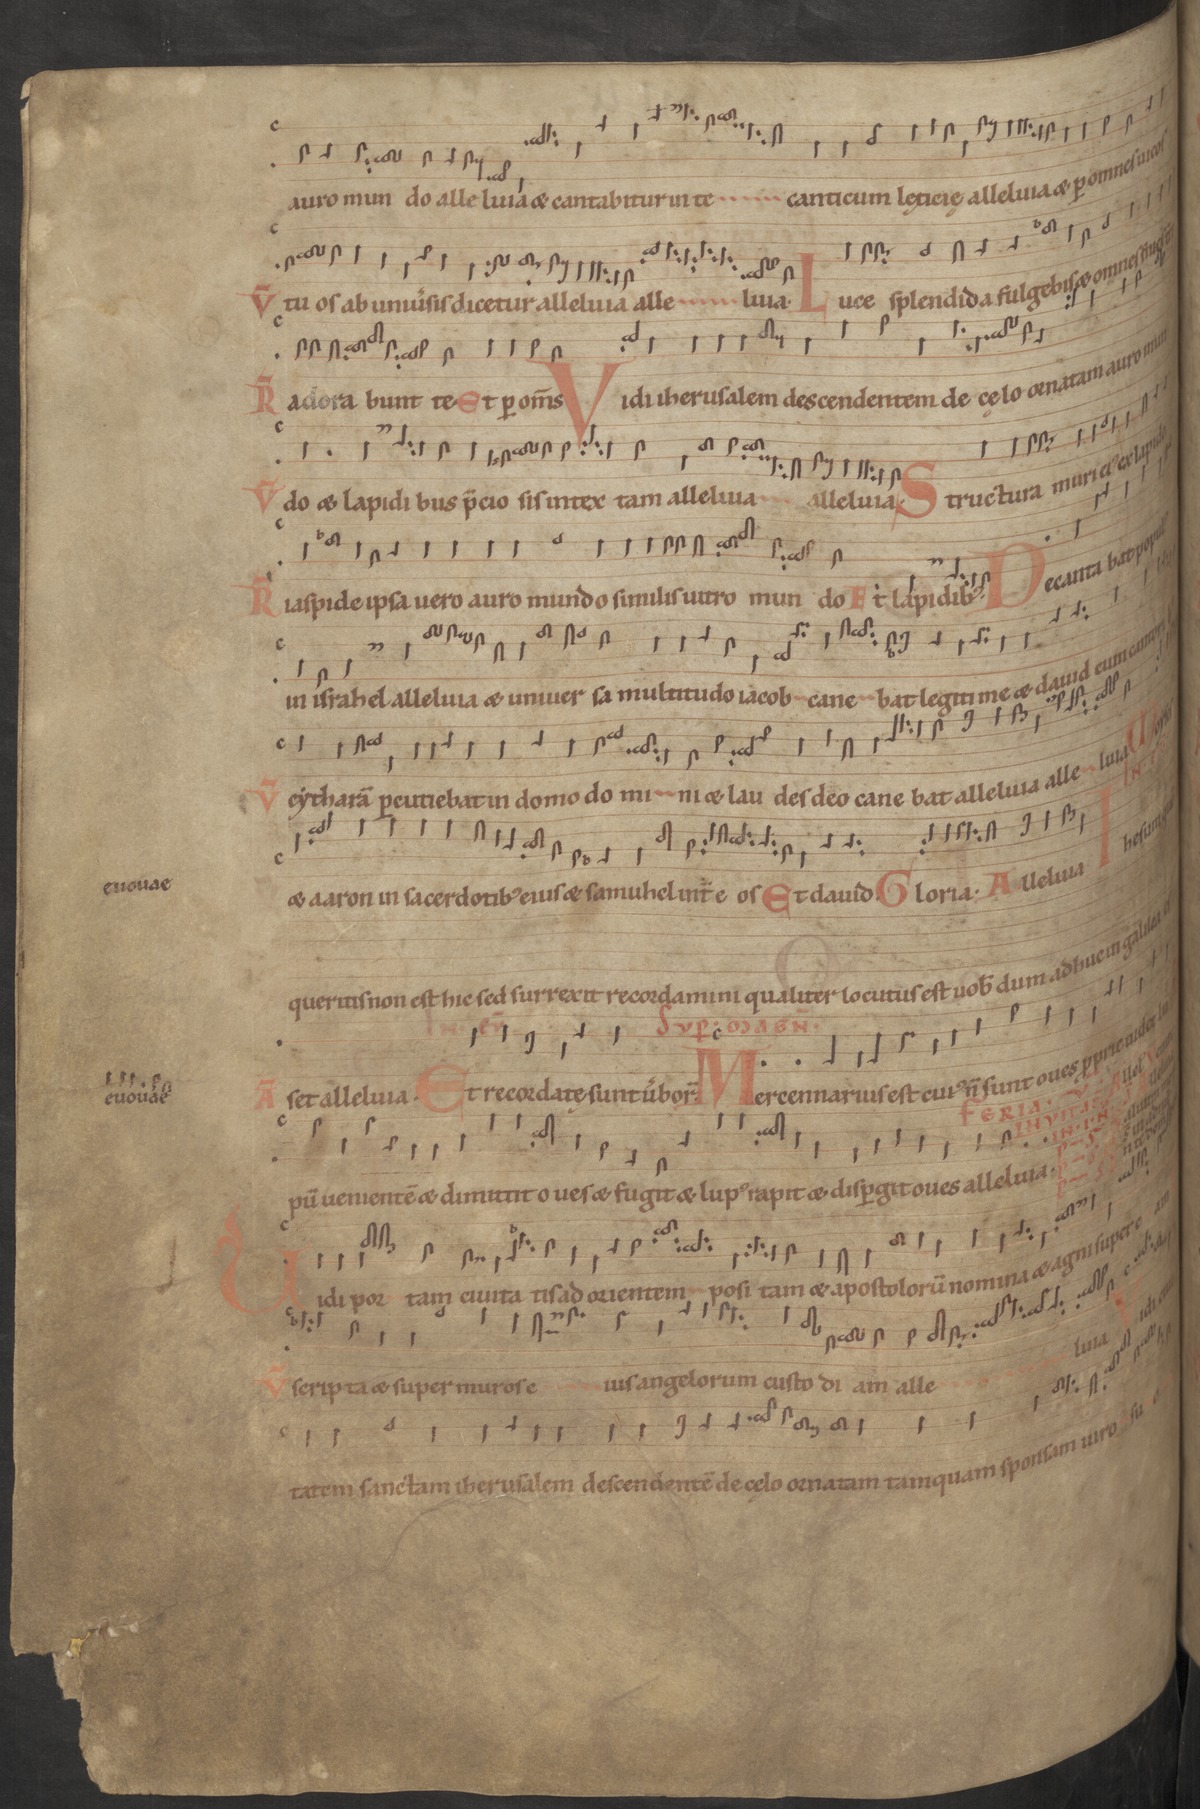 auro mun do alle luia & cantabitur in te canticum lęticię alleluia & p omnes uicos
V tu os ab uniu͛sis dicetur alleluia alle luia. Luce splendida fulgebis & omnes
R adora bunt te Et p om̄s Vidi iherusalem descendentem de cęlo ornatam auro mun
V do & lapidi bus p̄cio sis intex tam alleluia alleluia. Structura muri ei᷒ ex lapide
R iaspide ipsa uero auro mundo similis uitro mun do Et lapidib᷒ Decanta bat popul᷒
in israhel alleluia & uniuer sa multitudo iacob cane bat legitime & dauid cum cantorib᷒
V cytharā p cutiebat in domo do mi ni & lau des deo cane bat alleluia alle luia
euouae
& aaron in sacerdotib᷒ eius & samuhel int̄ e os Et dauid. Gloria. Alleluia
queritis non est hic sed surrexit recordamini qualiter locutus est uob̄ dum adhuc in galilea
Sup. Magn̄.
euouae
A set alleluia. Et recordatę sunt ū͛bor̄. Mercennarius est cui᷒ n̄ sunt oues p prię uidet
FERIA.
INVITAT.
pū uenientē & dimittit oues & fugit & lup᷒ rapit & disp̄git oues alleluia.
Uidi por tam ciuita tis ad orientem posi tam & apostolorū nomina & agni super e am
V scrip ta & super muros e ius angelorum custo di am alle luia Vidi ciui
tatem sanctam iherusalem descendentē de cęlo ornatam tamquam sponsam uiro su o